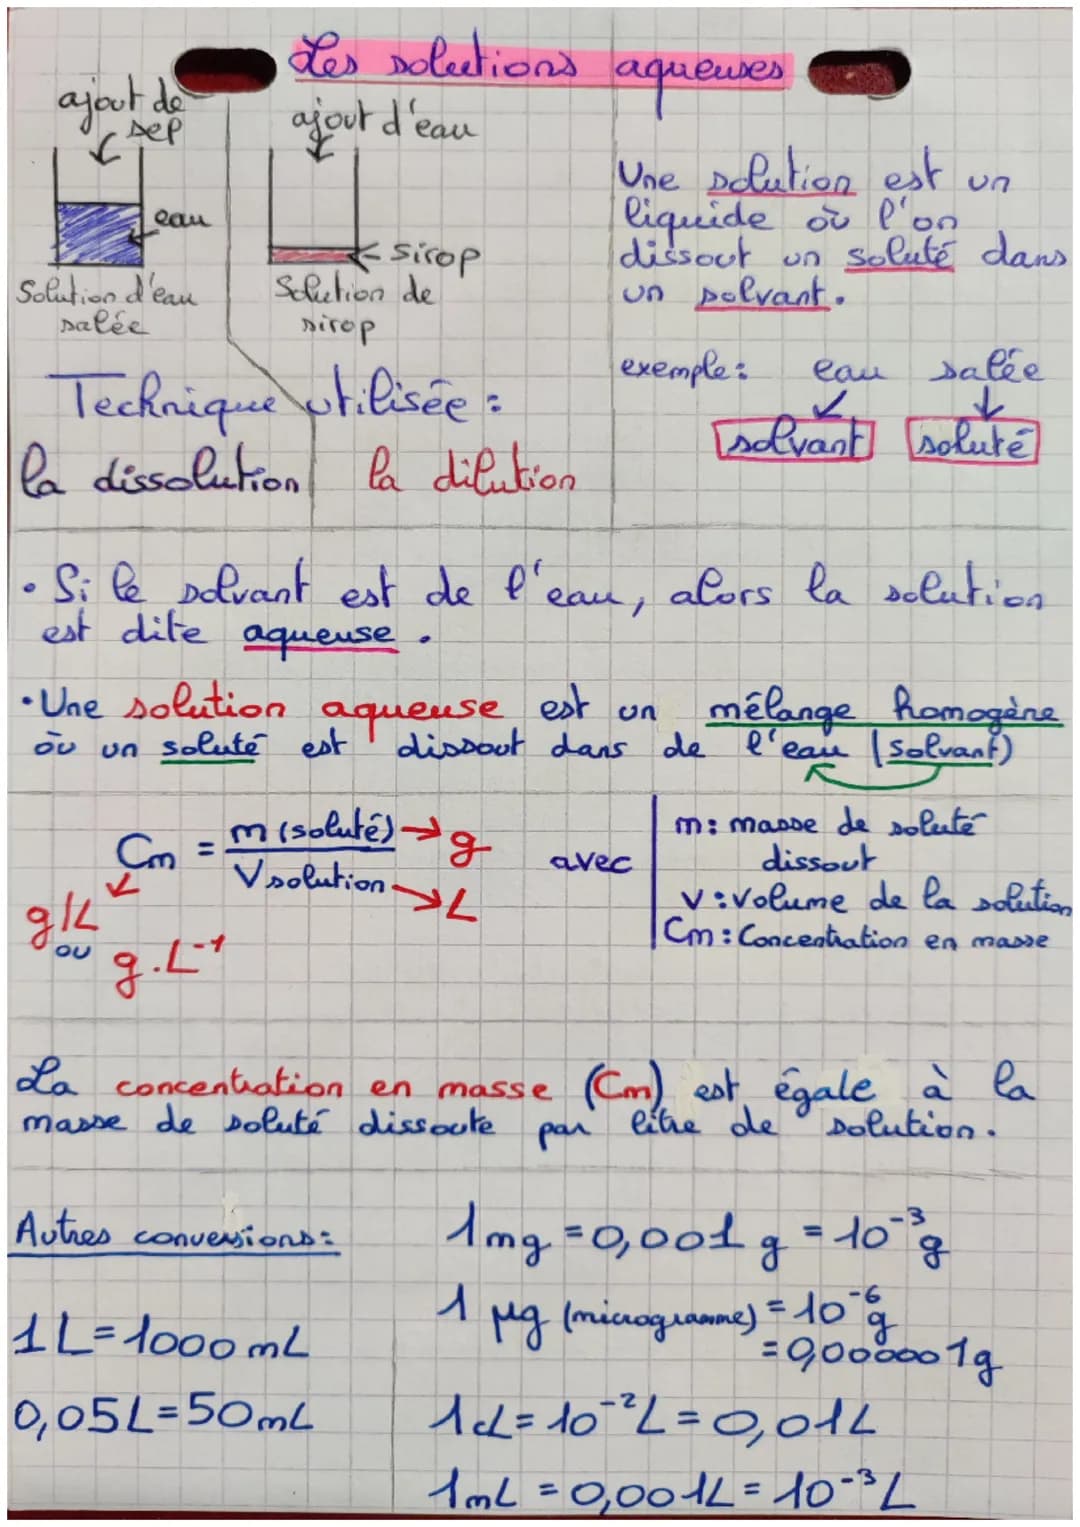 Les solutions aqueuses
ajout de
sel
eau
Solution d'eau
salée
ajout d'eau
sirop
Solution de
sirop
Technique utilisée :
la dissolution
la dilution
Une solution est un
liquide où l'on
dissout un soluté dans
un solvant.
exemple : eau salée
solvant soluté
• Si le solvant est de l'eau, alors la solution
est dite aqueuse.
• Une solution aqueuse est un mélange homogène
où un soluté est dissout dans de l'eau (solvant)
Cm = m (soluté) → g
V solution → L
g/L
ou
g.L⁻¹
avec
m : masse de soluté
dissout
V : Volume de la solution
Cm : Concentration en masse
La concentration en masse (Cm) est égale à la
masse de soluté dissoute par litre de solution.
Autres conversions :
1 L = 1000 mL
0,05L = 50mL
1 mg = 0,001 g = 10⁻³ g
1 µg (microgramme) = 10⁻⁶ g
= 0,000001g
1cL = 10⁻² L = 0,01L
1mL = 0,001L = 10⁻³ L